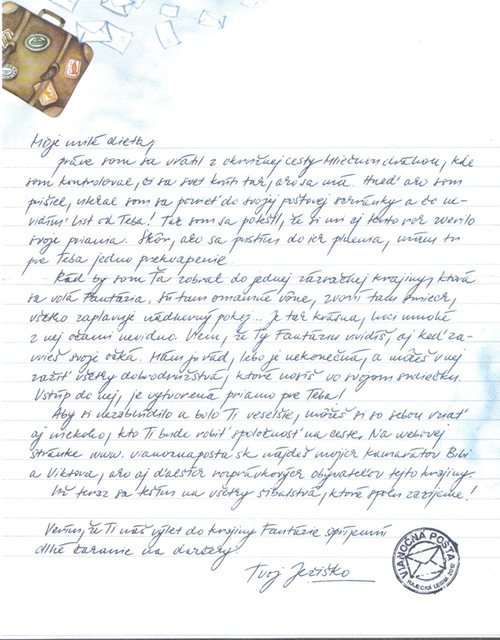 Moje milé dieťa,
práve som sa vrátil z okružnej cesty Mliečnou dráhou, kde
som kontroloval, či sa svet krúti tak, ako sa má. Hneď ako som
prišiel, utekal som sa pozrieť do svojej poštovej schránky a čo ne-
vidím! List od Teba! Tak som sa potešil, že si mi aj tento rok zveril
svoje priania. Skôr, ako sa pustím do ich plnenia, mám tu
pre Teba jedno prekvapenie.
Rád by som Ťa zobral do jednej zázračnej krajiny, ktorá
sa volá Fantázia. Sú tam omamné vône, zvoní tam smiech,
všetko zaplavuje nádherný pokoj... Je tak krásna, hoci mnohé
z nej očami nevidno. Viem, že Ty Fantáziu uvidíš, aj keď za-
vrieš svoje očká. Mám ju rád, lebo je nekonečná, a môžeš v nej
zažiť všetky dobrodružstvá, ktoré nosíš vo svojom srdiečku.
Vstúp do nej, je vytvorená priamo pre Teba!
Aby si nezablúdilo a bolo Ti veselšie, môžeš si so sebou vziať
aj niekoho, kto Ti bude robiť spoločnosť na ceste. Na webovej
stránke www.vianocnaposta.sk nájdeš mojich kamarátov Bibi
a Viktora, ako aj ďalších rozprávkových obyvateľov tejto krajiny.
Už teraz sa teším na všetky šibalstvá, ktoré spolu zažijeme!
Verím, že Ti náš výlet do krajiny Fantázie spríjemní
dlhé čakanie na darčeky.
Tvoj Ježiško
VIANOČNÁ POŠTA
RAJECKÁ LESNÁ 2012